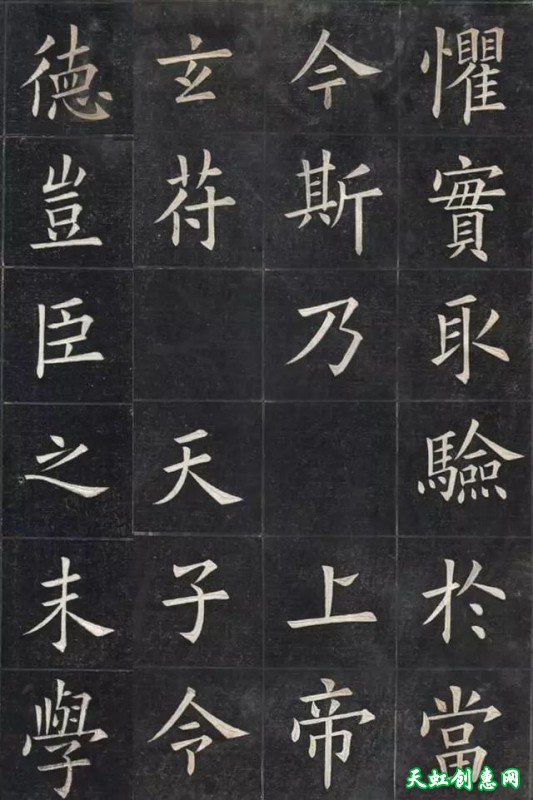 懼實取驗於當
今斯乃上帝
玄苻天子令
德豈臣之末學
天虹创惠网